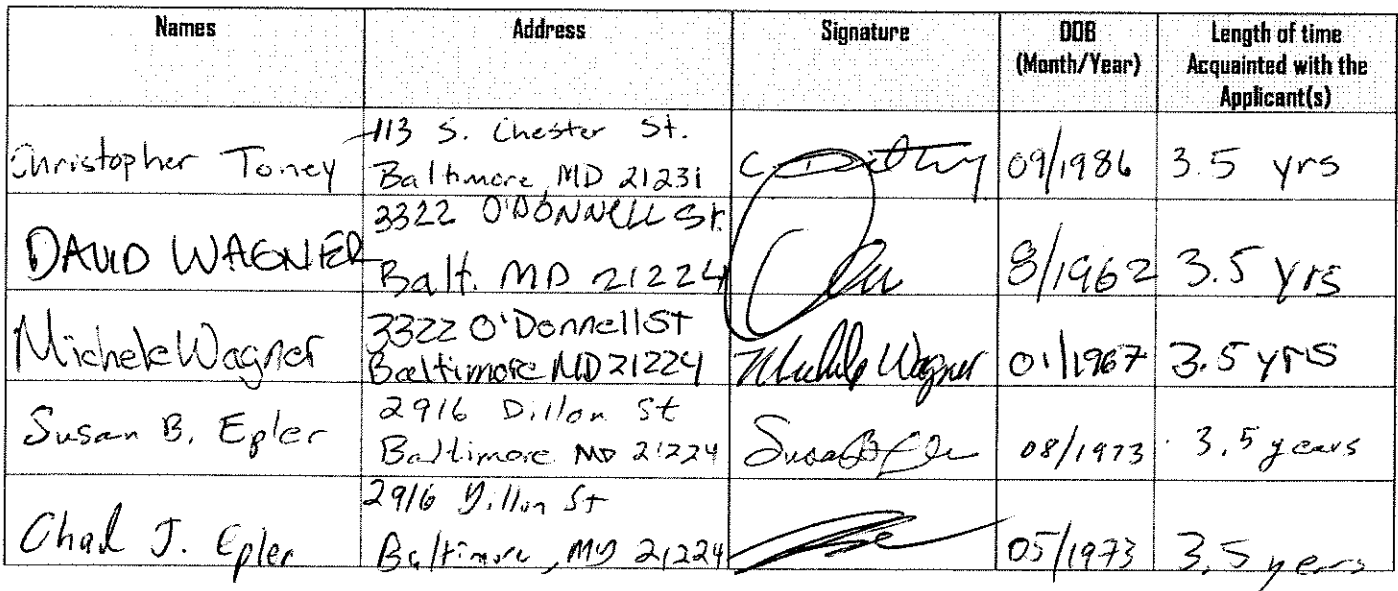 Names Address Signature DOB (Month/Year) Length of time Acquainted with the Applicant(s)
Christopher Toney 113 S. Chester St. Baltimore, MD 21231 09/1986 3.5 yrs
DAVID WAGNER 3322 O'DONNELL St. Balt. MD 21224 8/1962 3.5 yrs
Michele Wagner 3322 O'Donnell ST Baltimore MD 21224 Michele Wagner 01/1967 3.5 yrs
Susan B. Epler 2916 Dillon St Baltimore MD 21224 Susan B Epler 08/1973 3.5 years
Chad J. Epler 2916 Dillon St Baltimore, MD 21224 05/1973 3.5 years